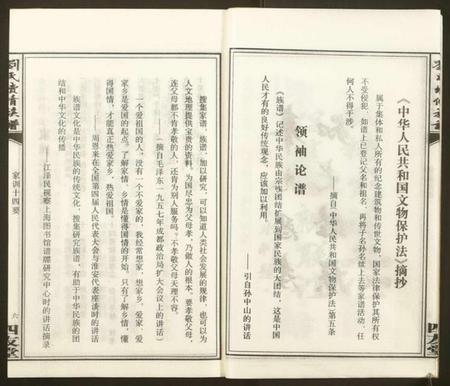 《中华人民共和国文物保护法》摘抄
属于集体和私人所有的纪念建筑物和传世文物，国家法律保护其所有权
不受侵犯。如谱上已登记父名和祖名，再将子名孙名续上去等家谱活动，任
何人不得干涉
——摘自《中华人民共和国文物保护法》第五条
领袖论谱
《族谱》记述中华民族由宗族团结扩展到国家民族的大团结，这是中国
人民才有的良好传统观念，应该加以利用。
——引自孙中山的讲话
搜集家谱、族谱，加以研究，可以知道人类社会发展的规律，也可以为
人文地理提供宝贵的资料。为国尽忠为父母孝，乃做人的根本，要孝敬父母，
连父母都不肯孝敬的人，还肯为别人服务吗？不孝敬父母天理不容。
（摘自毛泽东一九五七年成都政治局扩大会议上的讲话）
一个爱祖国的人，没有一个不爱家的，我经常想家，想家乡，爱家，爱
家乡是爱国的起点。了解家情，乡情是懂得国情的开始，只有了解乡情，懂
得国情，才能真正热爱家乡，热爱祖国。
——周恩来在全国第四届人民代表大会与淮安代表座谈时的讲话
族谱文化是中华民族的传统文化，搜集研究族谱，有助于中华民族的团
结和中华文化的传播
——江泽民视察上海图书馆谱牒研究中心时的讲话摘录
刘氏续修族谱
家训十四要
六
四友堂